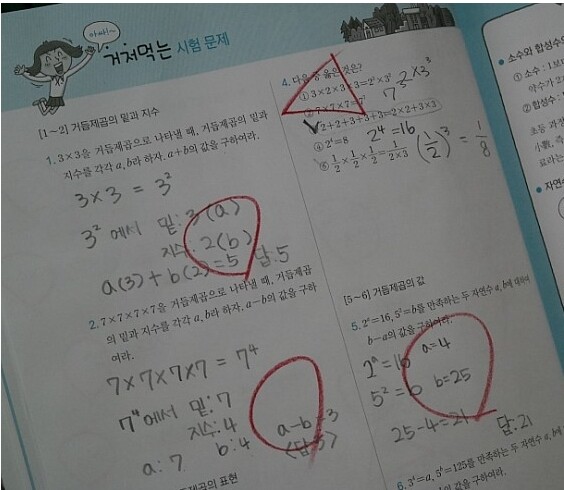 아싸!~
거저먹는 시험 문제
[1~2] 거듭제곱의 밑과 지수
1. 3×3을 거듭제곱으로 나타낼 때, 거듭제곱의 밑과
지수를 각각 a, b라 하자. a+b의 값을 구하여라.
3×3 = 3²
3²에서 밑: 3(a)
지수: 2(b)
a(3)+b(2)=5 답: 5
2. 7×7×7×7을 거듭제곱으로 나타낼 때, 거듭제곱
의 밑과 지수를 각각 a, b라 하자. a-b의 값을 구하
여라.
7×7×7×7 = 7⁴
7⁴에서 밑: 7
지수: 4
a: 7 b: 4
a-b=3
거듭제곱의 표현
4. 다음 중 옳은 것은?
① 3×2×3×3=2¹×3³
② 7×7×7=7
③ 2+2+3+3+3=2×2+3×3
④ 2⁴=8
2⁴=16
⑤ 1/2×1/2×1/2=1/2×3
(1/2)³ = 1/8
[5~6] 거듭제곱의 값
5. 2ᵃ=16, 5²=b를 만족하는 두 자연수 a, b에 대하여
b-a의 값을 구하여라.
2ᵃ=16 a=4
5²=b b=25
25-4=21 답: 21
소수와 합성수의
① 소수 : 1보
약수가 2
② 합성수 :
초등 과정
자연수